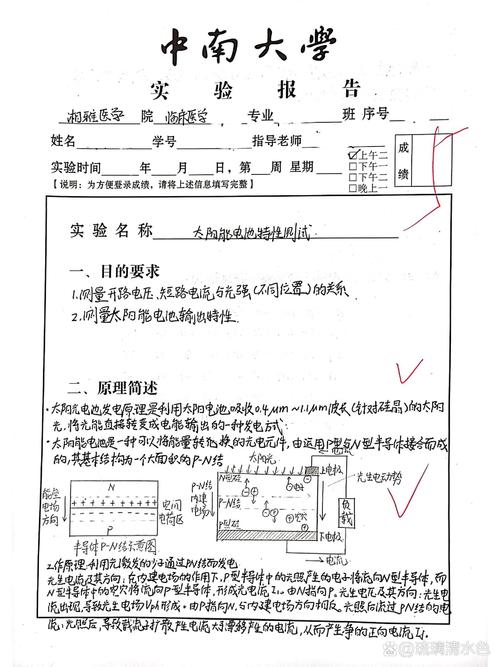 中南大学
实验报告
湘雅医学 院 临床医学 专业 班 序号
姓名 学号 指导老师
☑上午二
□下午一
□下午二
□晚上一
成绩
实验时间 年 月 日，第 周 星期
【说明：为方便登录成绩，请将上述信息填写完整】
实验名称 太阳能电池特性测试
一、目的要求
1.测量开路电压、短路电流与光强（不同位置）的关系
2.测量太阳能电池输出特性.
二、原理简述
·太阳光电池发电原理是利用太阳电池吸收0.4μm~1.1μm波长（针对硅晶）的太阳
光，将光能直接转变成电能输出的一种发电方式.
·太阳能电池是一种可以将能量转换的光电元件，由运用P型与N型半导体接合而成
的，其基本结构为一个大面积的P-N结
太阳光
内建电场方向
N
P
空间电荷区
半导体P-N结示意图
N型硅
P-N结
内建电场
P型硅
电子
空穴
上电极
下电极
光生电动势
负载
电流
2.工作原理:利用光激发的分子通过PN结而发电
光生电流及其方向：在内建电场的作用下，P型半导体中的光照产生的电子将流向N型半导体，而
N型半导体中的空穴将流向P型半导体，形成光电流I₁.由N指向P.光生电压及其方向:光生电
流出现，导致光生电场Vph形成.由P指向N，与内建电场方向相反.光照后流过PN结的电
流:光照后，导致载流子扩散产生电流大于漂移产生的电流，从而产生净的正向电流I₁.
琉璃清水色